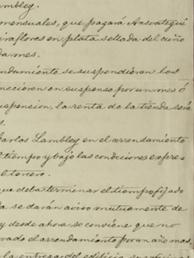 mbley.
mensuales, que pagará Ansrategui
raflores en plata sellada del cuño
darmes.
ndamiento se suspendieran los
neciesen en suspenso por un mes ó
uspension, la renta de la tienda será
Carlos Lambley en el arrendamiento
l tiempo y bajo las condiciones expres
el tercero.
que de terminar el tiempo fijado
a se darán aviso mutuamente de
y desde ahora se conviene que no
rado el arrendamiento por un año mas,
la entrega del edificio